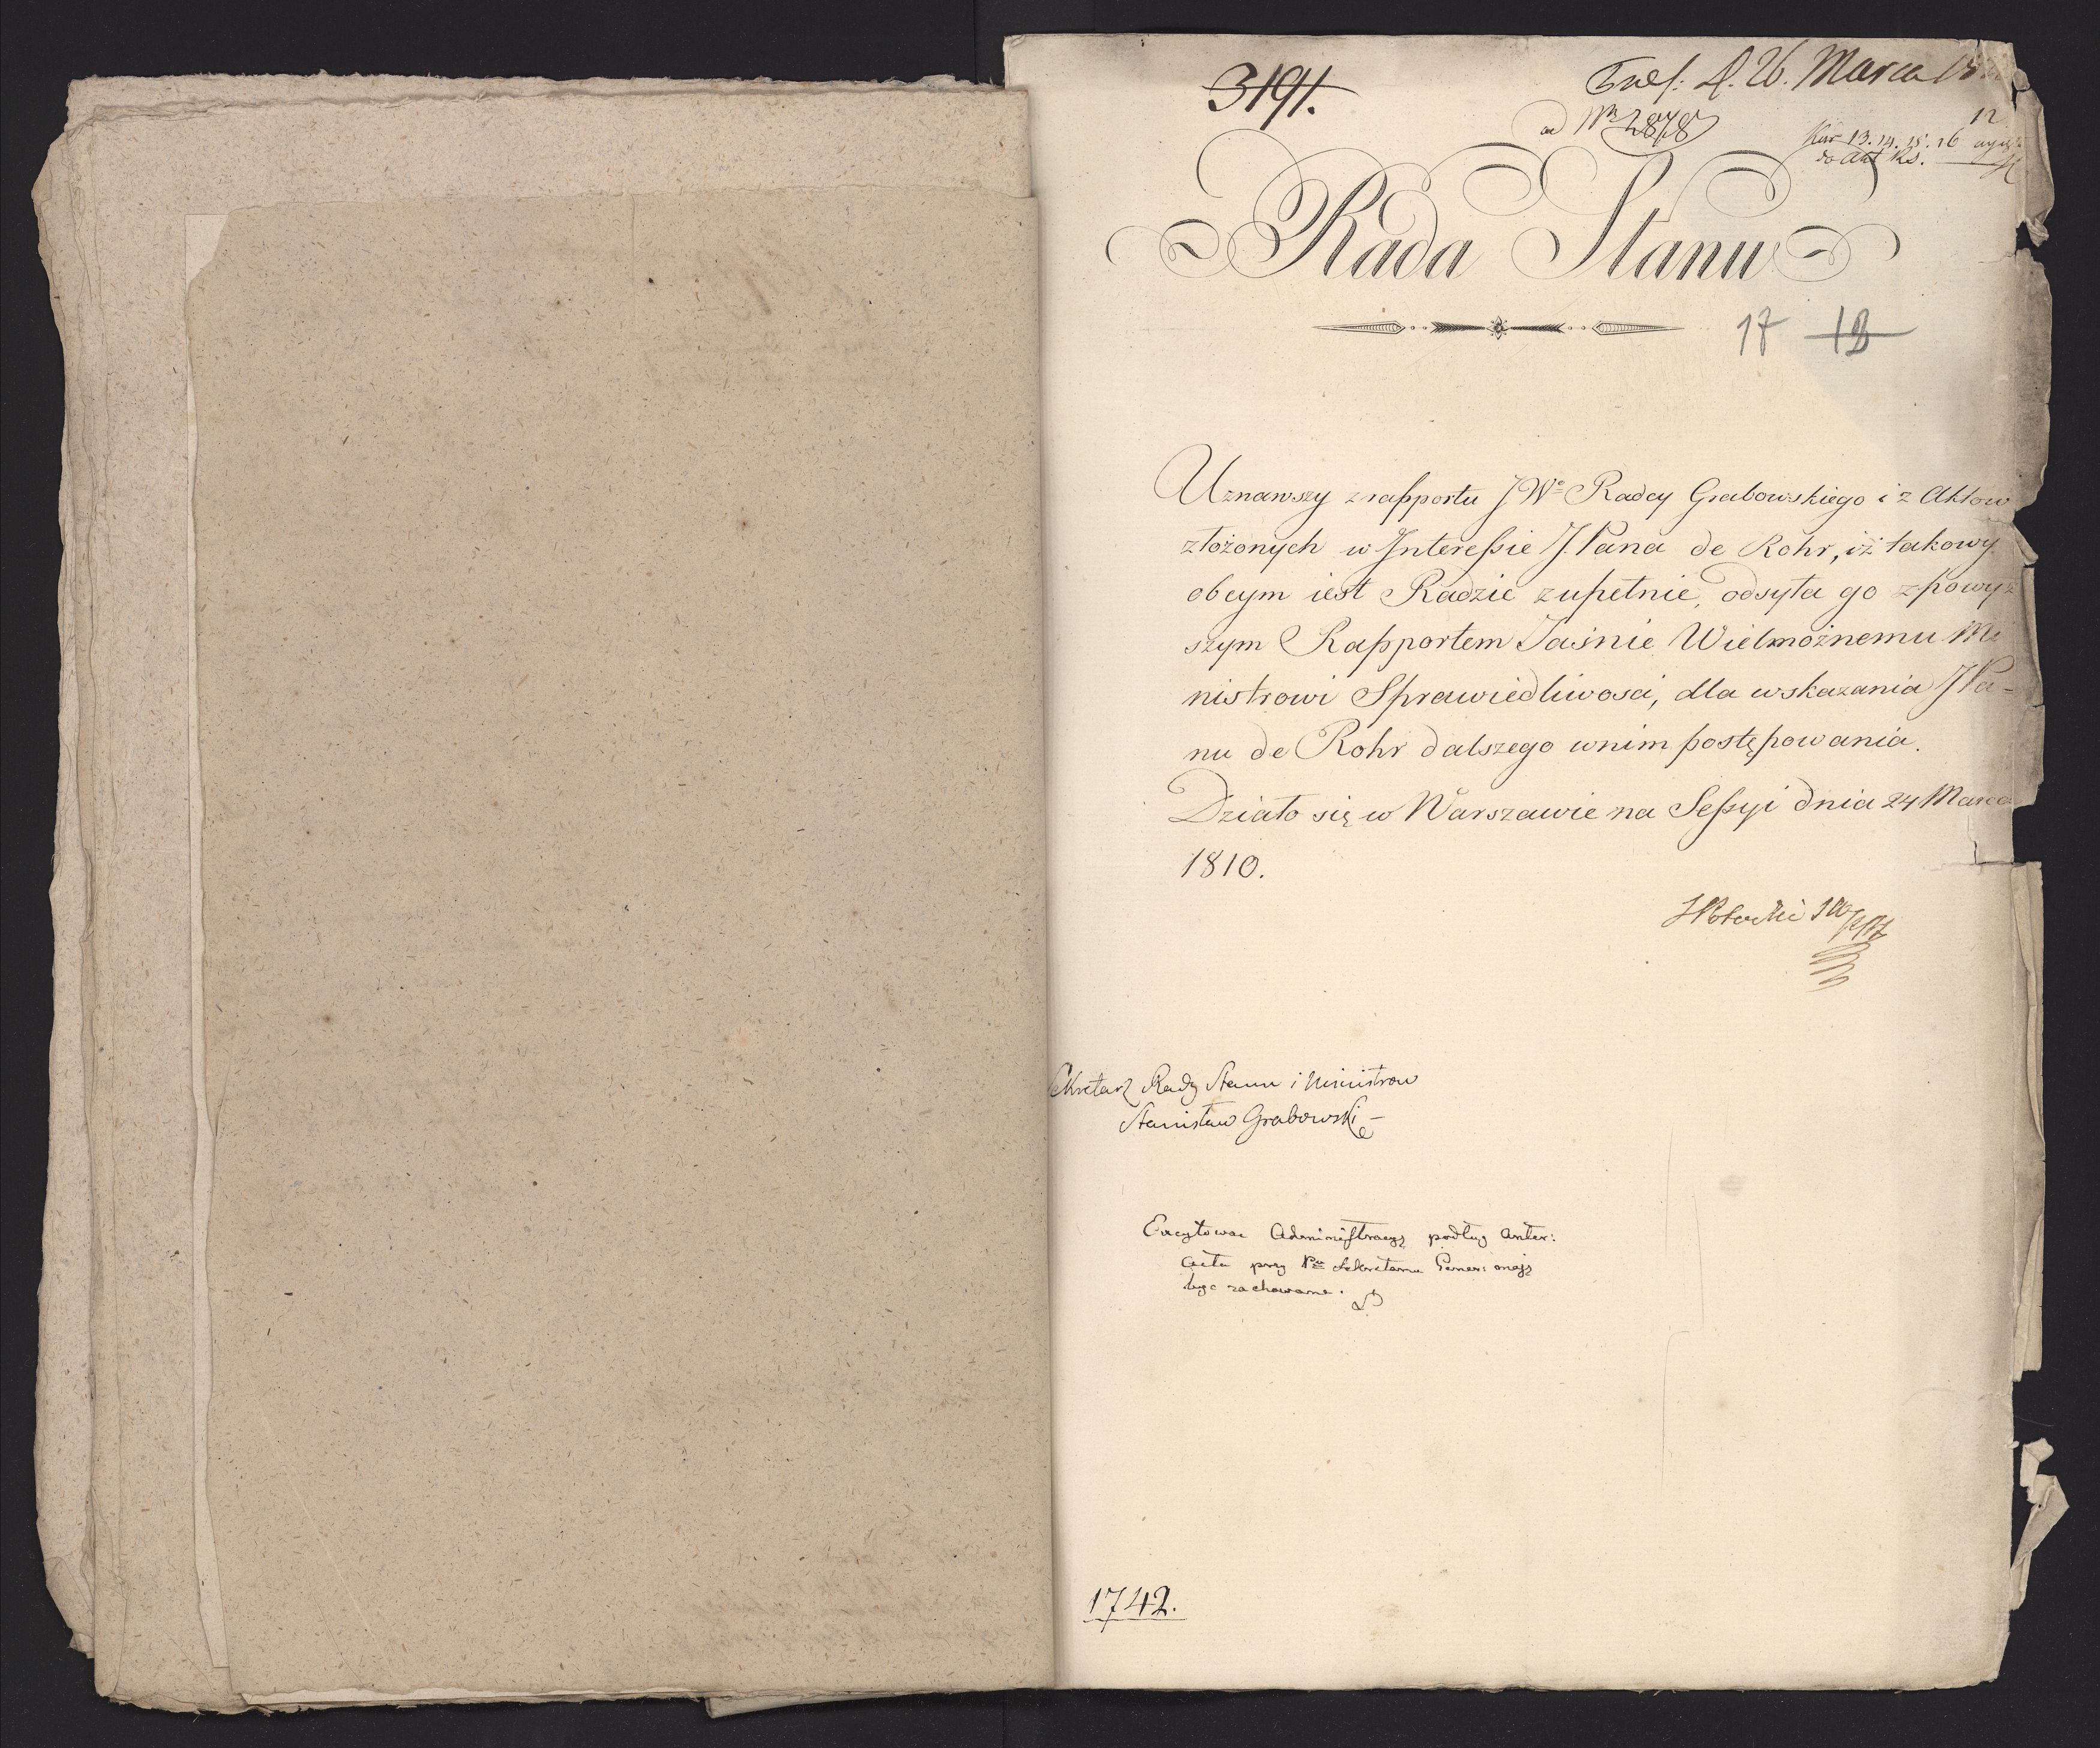 3191.
d. 26. Marca
ad Nr 2878
12
13. 14. 15. 16
do Akt
Rada Stanu
17 18
Uznawszy z rapportu JWo Radcy Grabowskiego i z Aktow
złożonych w Interessie JPana de Rohr, iż takowy
obcym iest Radzie zupełnie, odsyła go z powyż
szym Rapportem Jaśnie Wielmożnemu Mi
nistrowi Sprawiedliwosci, dla wskazania JPa-
nu de Rohr dalszego w nim postępowania.
Działo się w Warszawie na Sessyi dnia 24 Marca
1810.
Potocki
Sekretarz Rady Stanu i Ministrow
Stanisław Grabowski
Administracyą podług
Acta przy Sekretarzu
bydź zachowane.
1742.